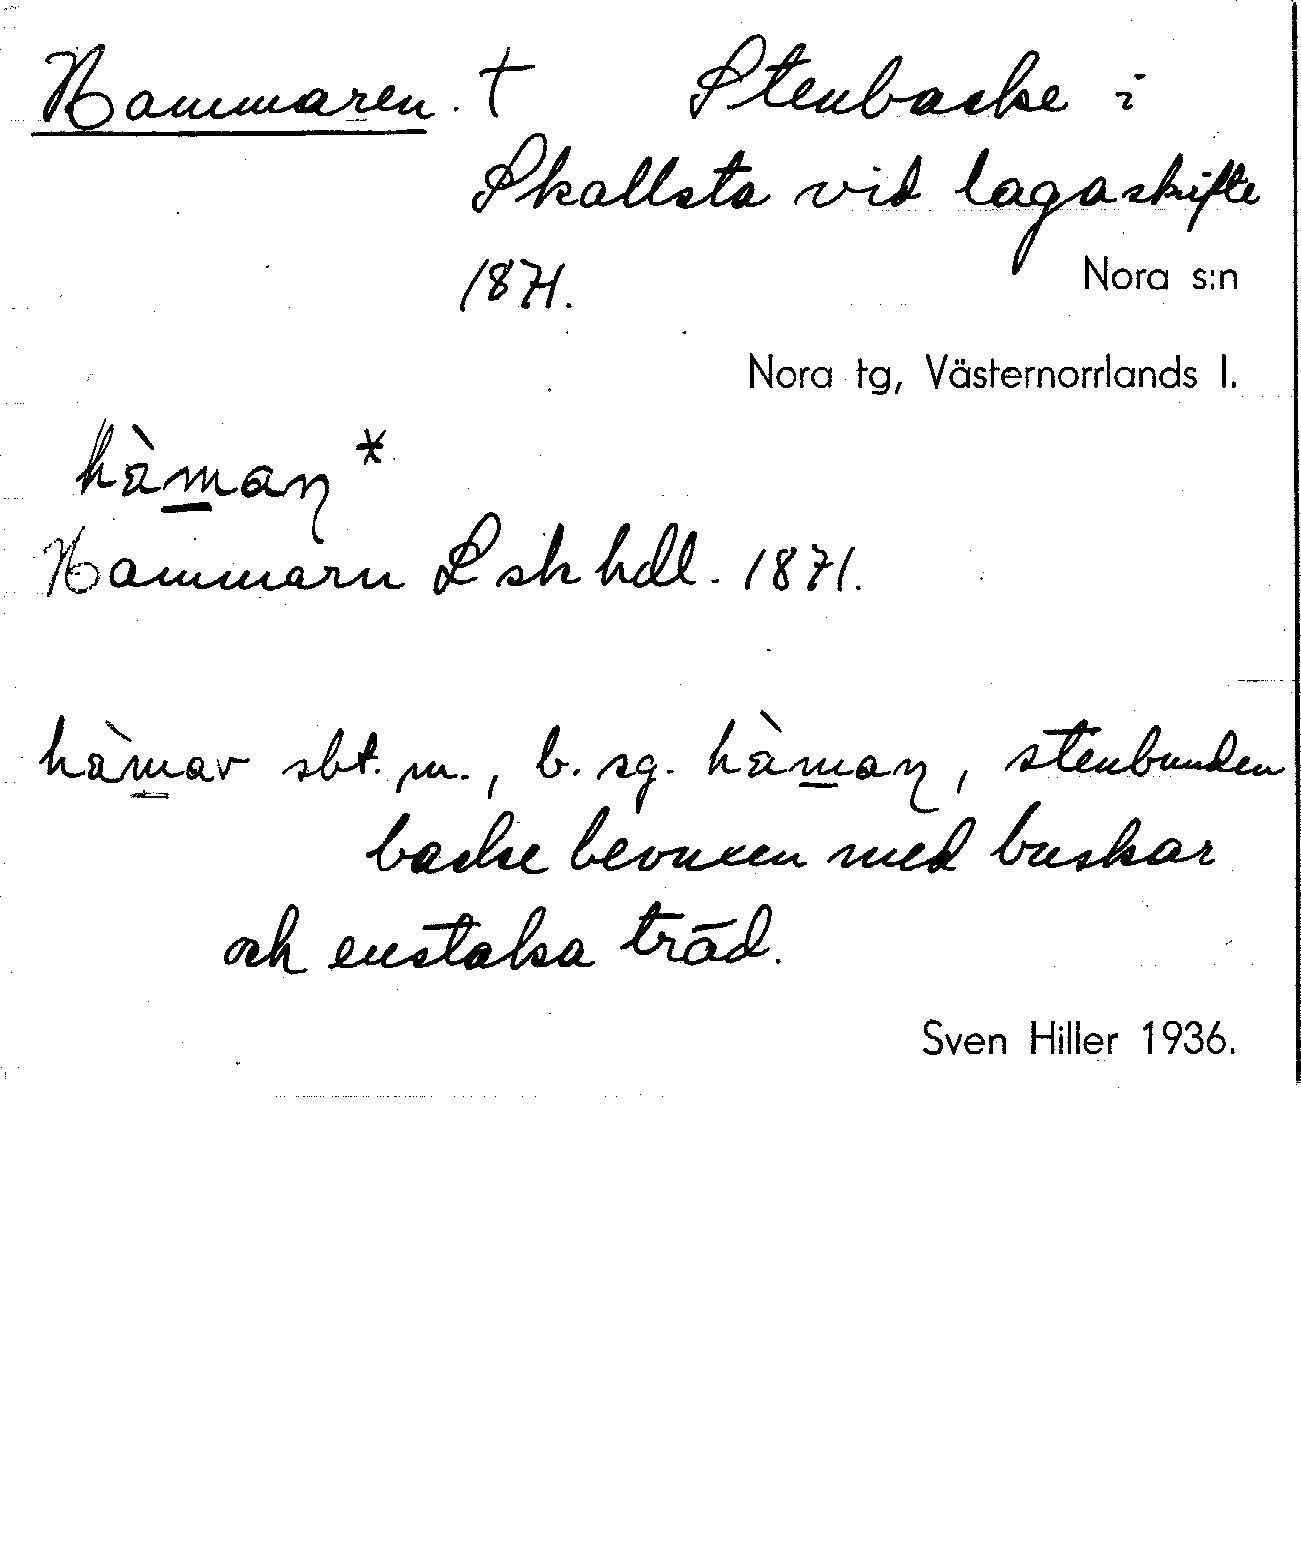 Hammaren. † Stenbacke i
Skallsta vid lagaskifte
1871.
Nora s:n
Nora tg, Västernorrlands l.
hàm̲aɳ *
Hammarn L sk hdl. 1871.
hàm̲ar sbt. m., b. sg. hàm̲aɳ, stenbunden
backe bevuxen med buskar
och enstaka träd.
Sven Hiller 1936.